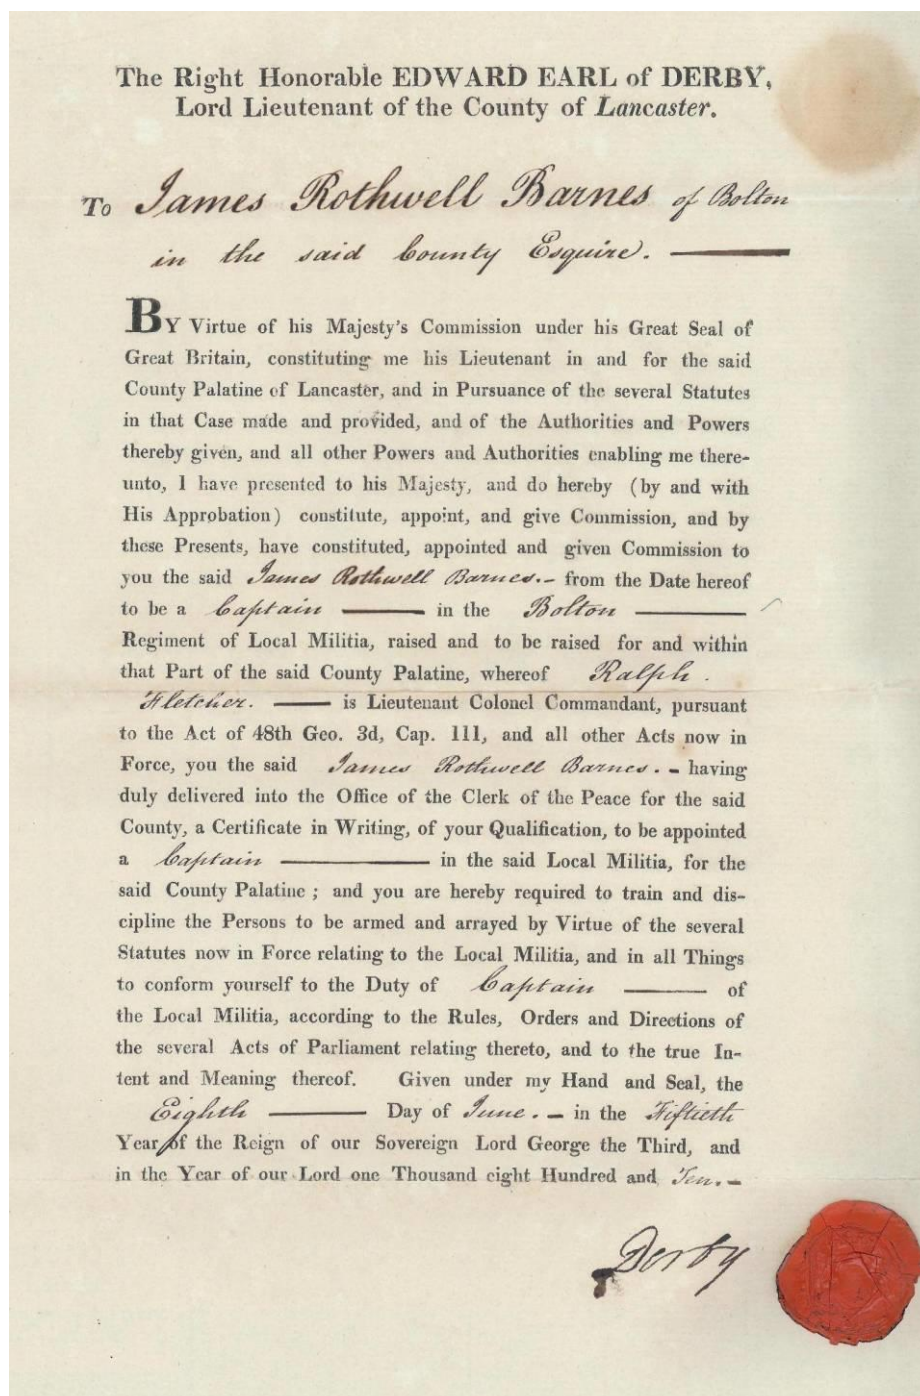 The Right Honorable EDWARD EARL of DERBY,
Lord Lieutenant of the County of Lancaster.
To James Rothwell Barnes of Bolton
in the said County Esquire.
BY Virtue of his Majesty's Commission under his Great Seal of
Great Britain, constituting me his Lieutenant in and for the said
County Palatine of Lancaster, and in Pursuance of the several Statutes
in that Case made and provided, and of the Authorities and Powers
thereby given, and all other Powers and Authorities enabling me there-
unto, I have presented to his Majesty, and do hereby (by and with
His Approbation) constitute, appoint, and give Commission, and by
these Presents, have constituted, appointed and given Commission to
you the said James Rothwell Barnes.- from the Date hereof
to be a Captain —— in the Bolton ——
Regiment of Local Militia, raised and to be raised for and within
that Part of the said County Palatine, whereof Ralph
Fletcher. —— is Lieutenant Colonel Commandant, pursuant
to the Act of 48th Geo. 3d, Cap. 111, and all other Acts now in
Force, you the said James Rothwell Barnes. - having
duly delivered into the Office of the Clerk of the Peace for the said
County, a Certificate in Writing, of your Qualification, to be appointed
a Captain —— in the said Local Militia, for the
said County Palatine ; and you are hereby required to train and dis-
cipline the Persons to be armed and arrayed by Virtue of the several
Statutes now in Force relating to the Local Militia, and in all Things
to conform yourself to the Duty of Captain —— of
the Local Militia, according to the Rules, Orders and Directions of
the several Acts of Parliament relating thereto, and to the true In-
tent and Meaning thereof. Given under my Hand and Seal, the
Eighth —— Day of June. - in the Fiftieth
Year of the Reign of our Sovereign Lord George the Third, and
in the Year of our Lord one Thousand eight Hundred and Ten.-
Derby